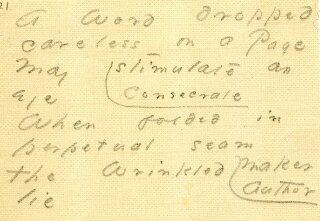 21
A Word dropped
careless on a Page
May stimulate an
eye Consecrate
When folded in
perpetual seam
The Wrinkled Maker
lie Author